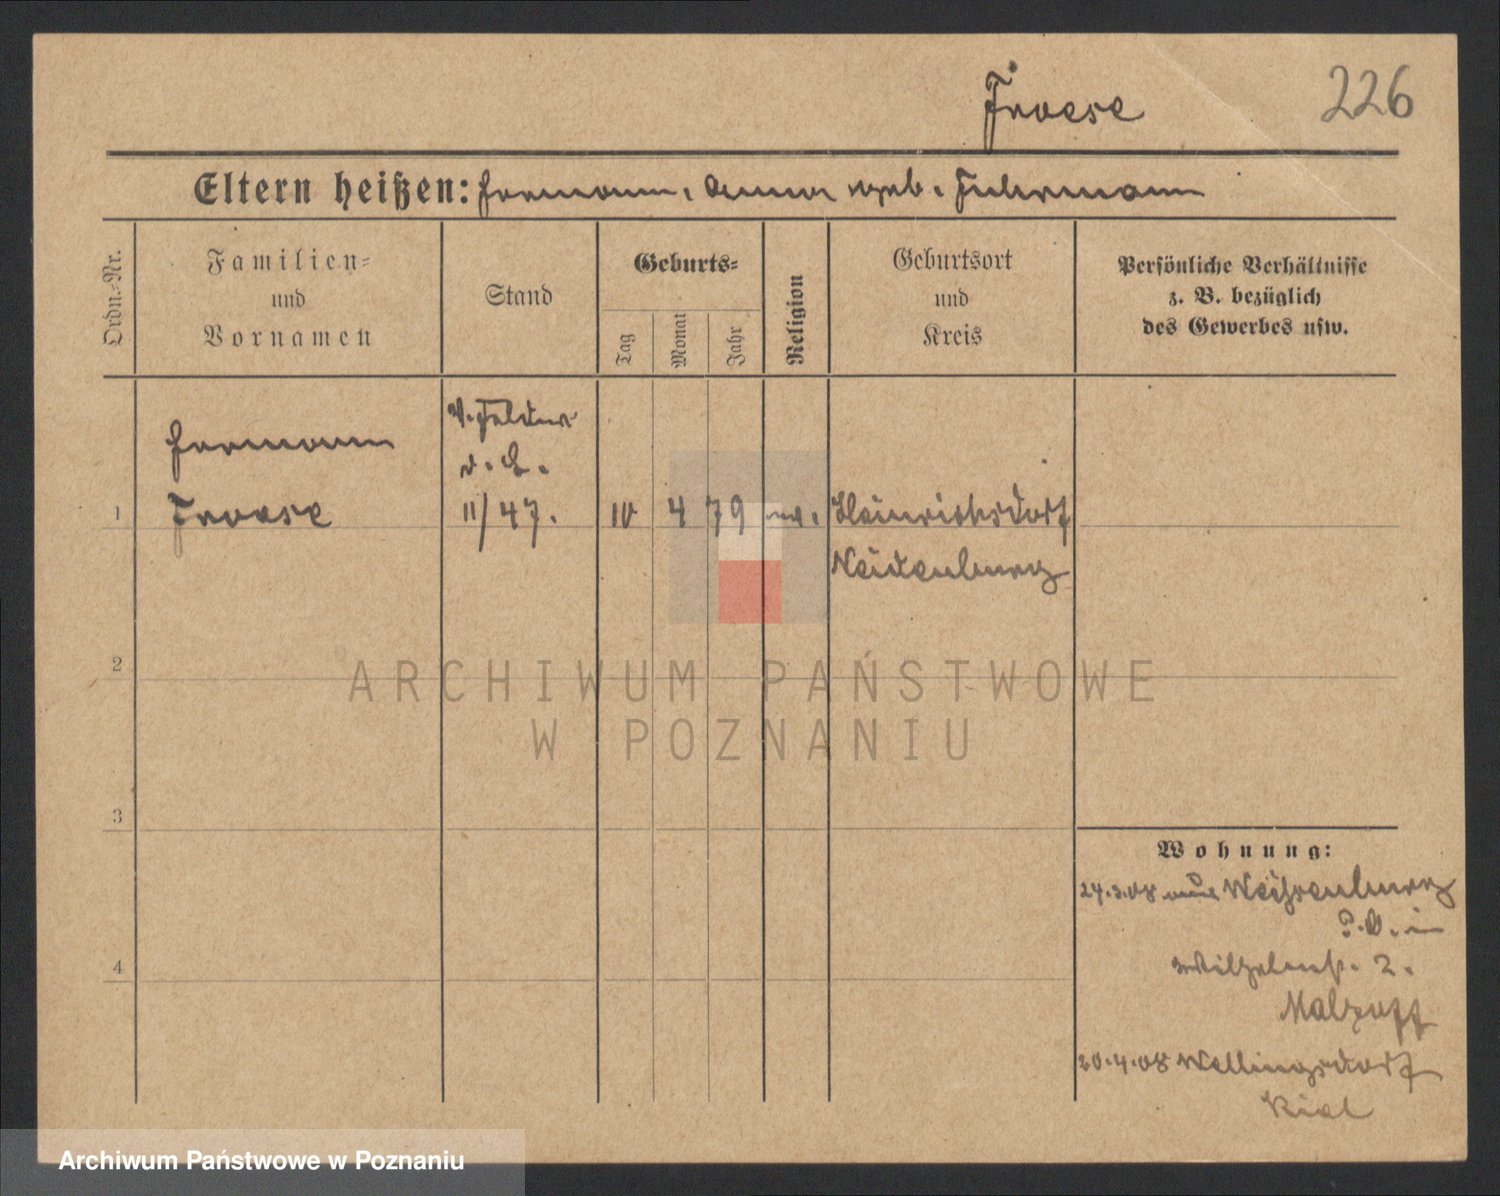 Froese
226
Eltern heißen: Hermann, Anna geb. Fuhrmann
Ordn.-Nr.
Familien- und Vornamen
Stand
Geburts-
Tag
Monat
Jahr
Religion
Geburtsort und Kreis
Persönliche Verhältnisse z. B. bezüglich des Gewerbes usw.
Hermann
V. Feldw.
d. L.
1 Froese II/47. 10 4 79 ev. Heinrichsdorf
Neidenburg
2
3
4
Wohnung:
24.3.08 Weißenburg
Wilhelmstr. 2.
20.4.08 Wellingsdorf
Kiel
ARCHIWUM PAŃSTWOWE
W POZNANIU
Archiwum Państwowe w Poznaniu